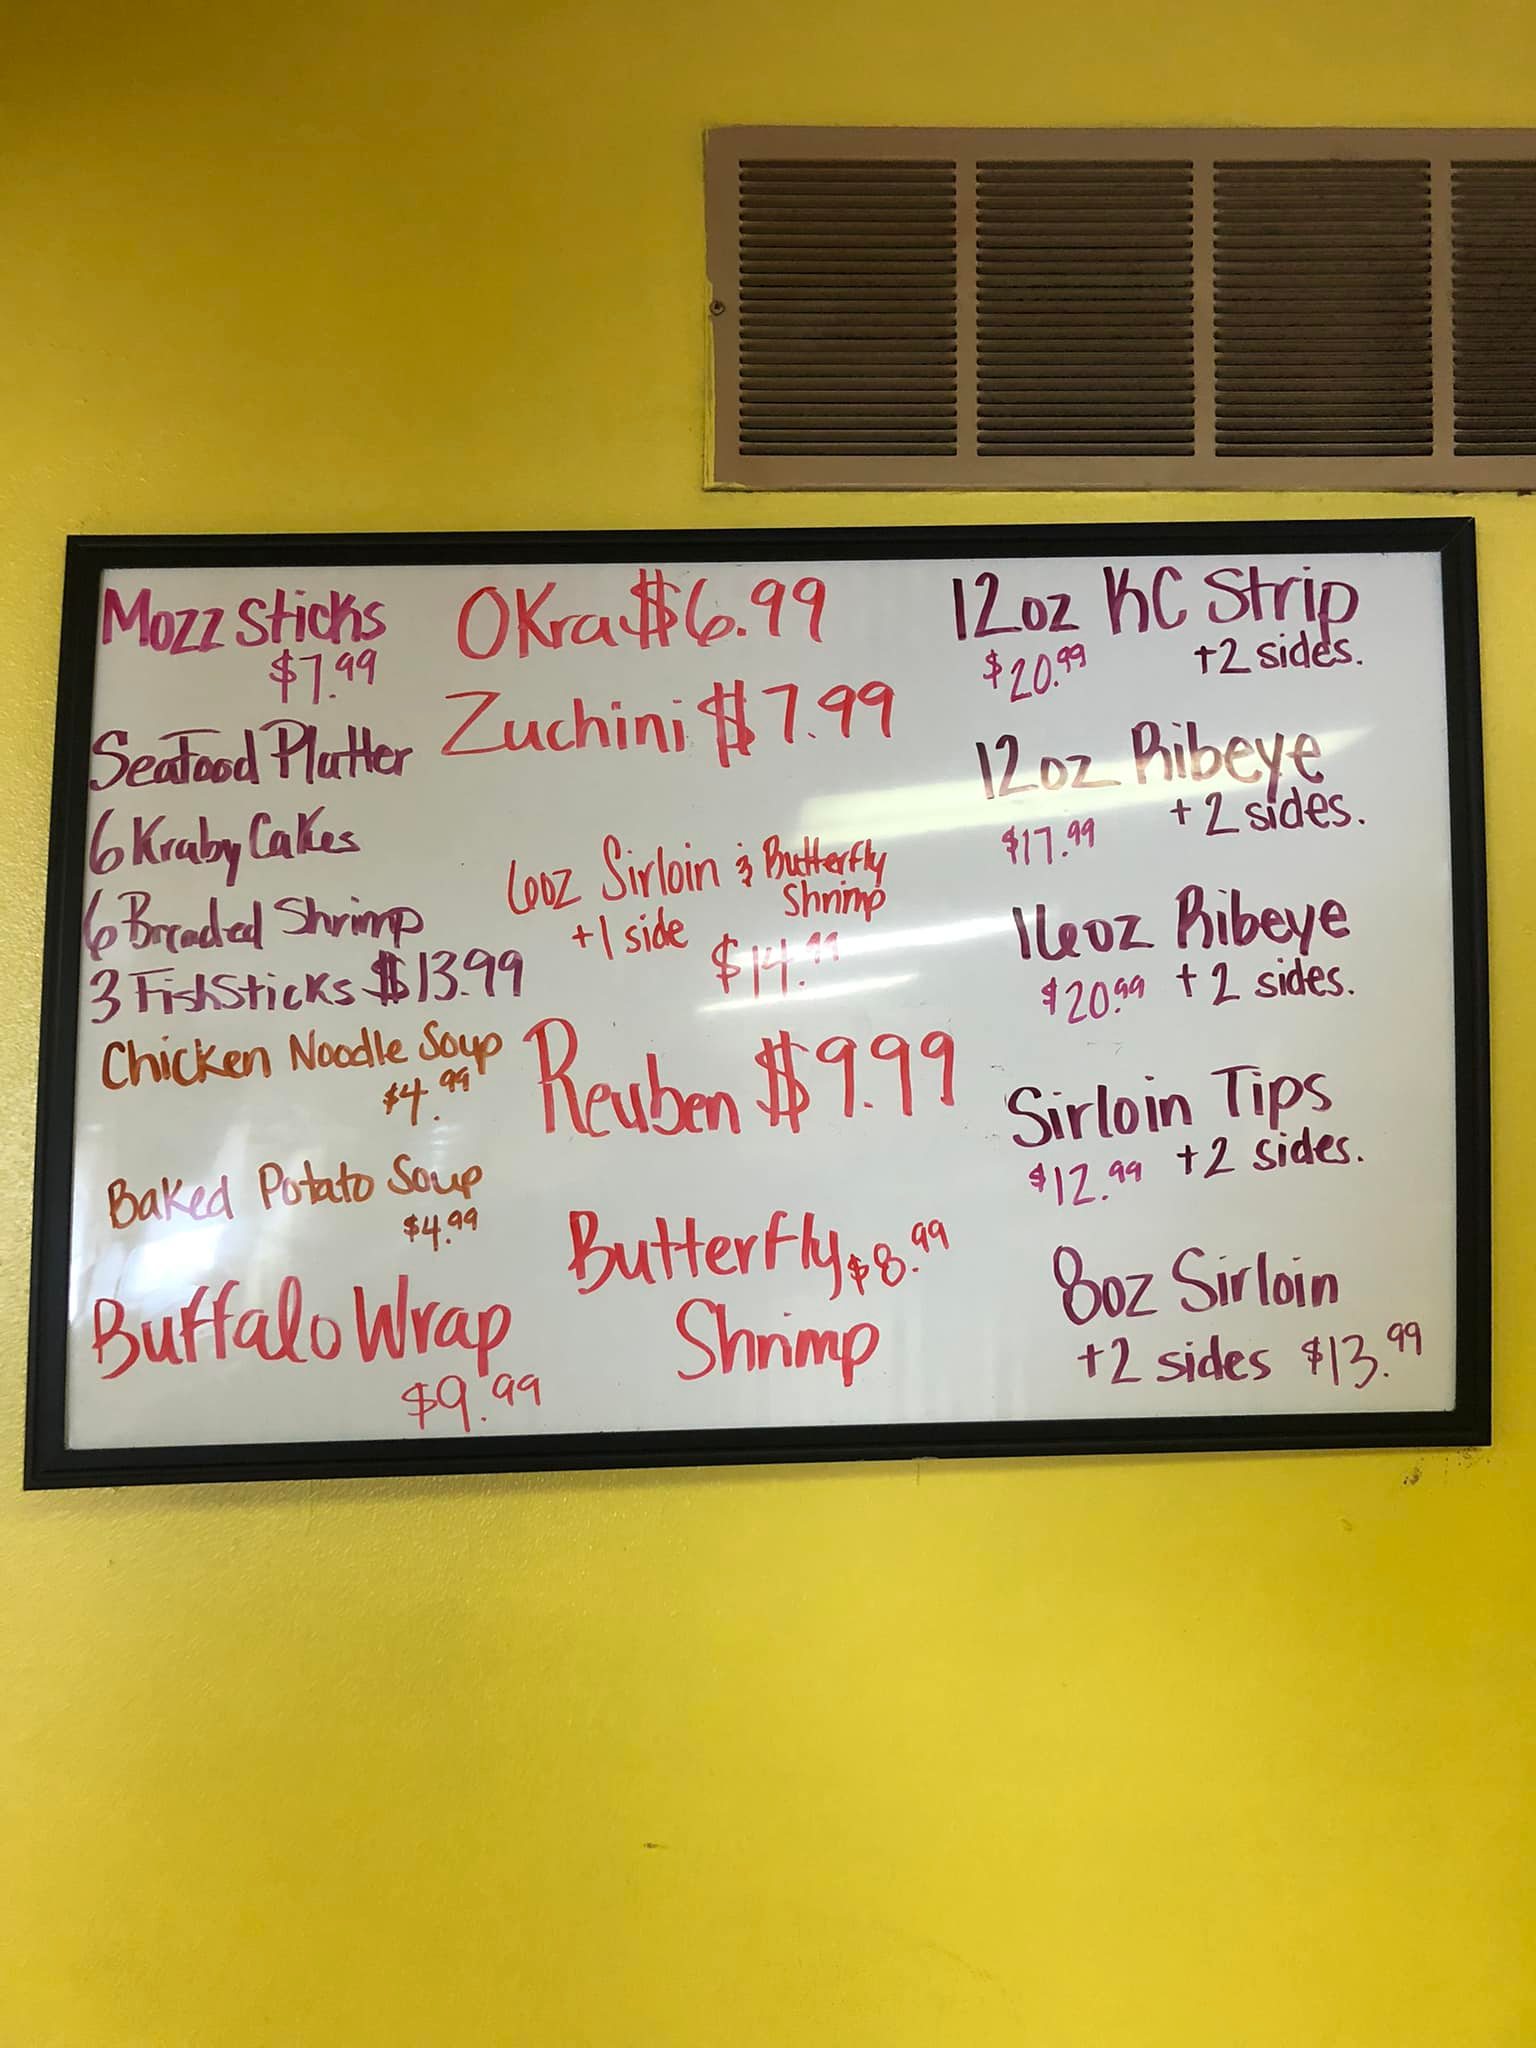 Mozz Sticks
$7.99
Seafood Platter
6 Kraby Cakes
6 Breaded Shrimp
3 FishSticks $13.99
Chicken Noodle Soup
$4.99
Baked Potato Soup
$4.99
Buffalo Wrap
$9.99
OKra $6.99
Zuchini $7.99
6oz Sirloin & Butterfly
Shrimp
+1 side
$14.99
Reuben $9.99
Butterfly $8.99
Shrimp
12oz KC Strip
$20.99 +2 sides.
12oz Ribeye
$17.99 +2 sides.
16oz Ribeye
$20.99 +2 sides.
Sirloin Tips
$12.99 +2 sides.
8oz Sirloin
+2 sides $13.99